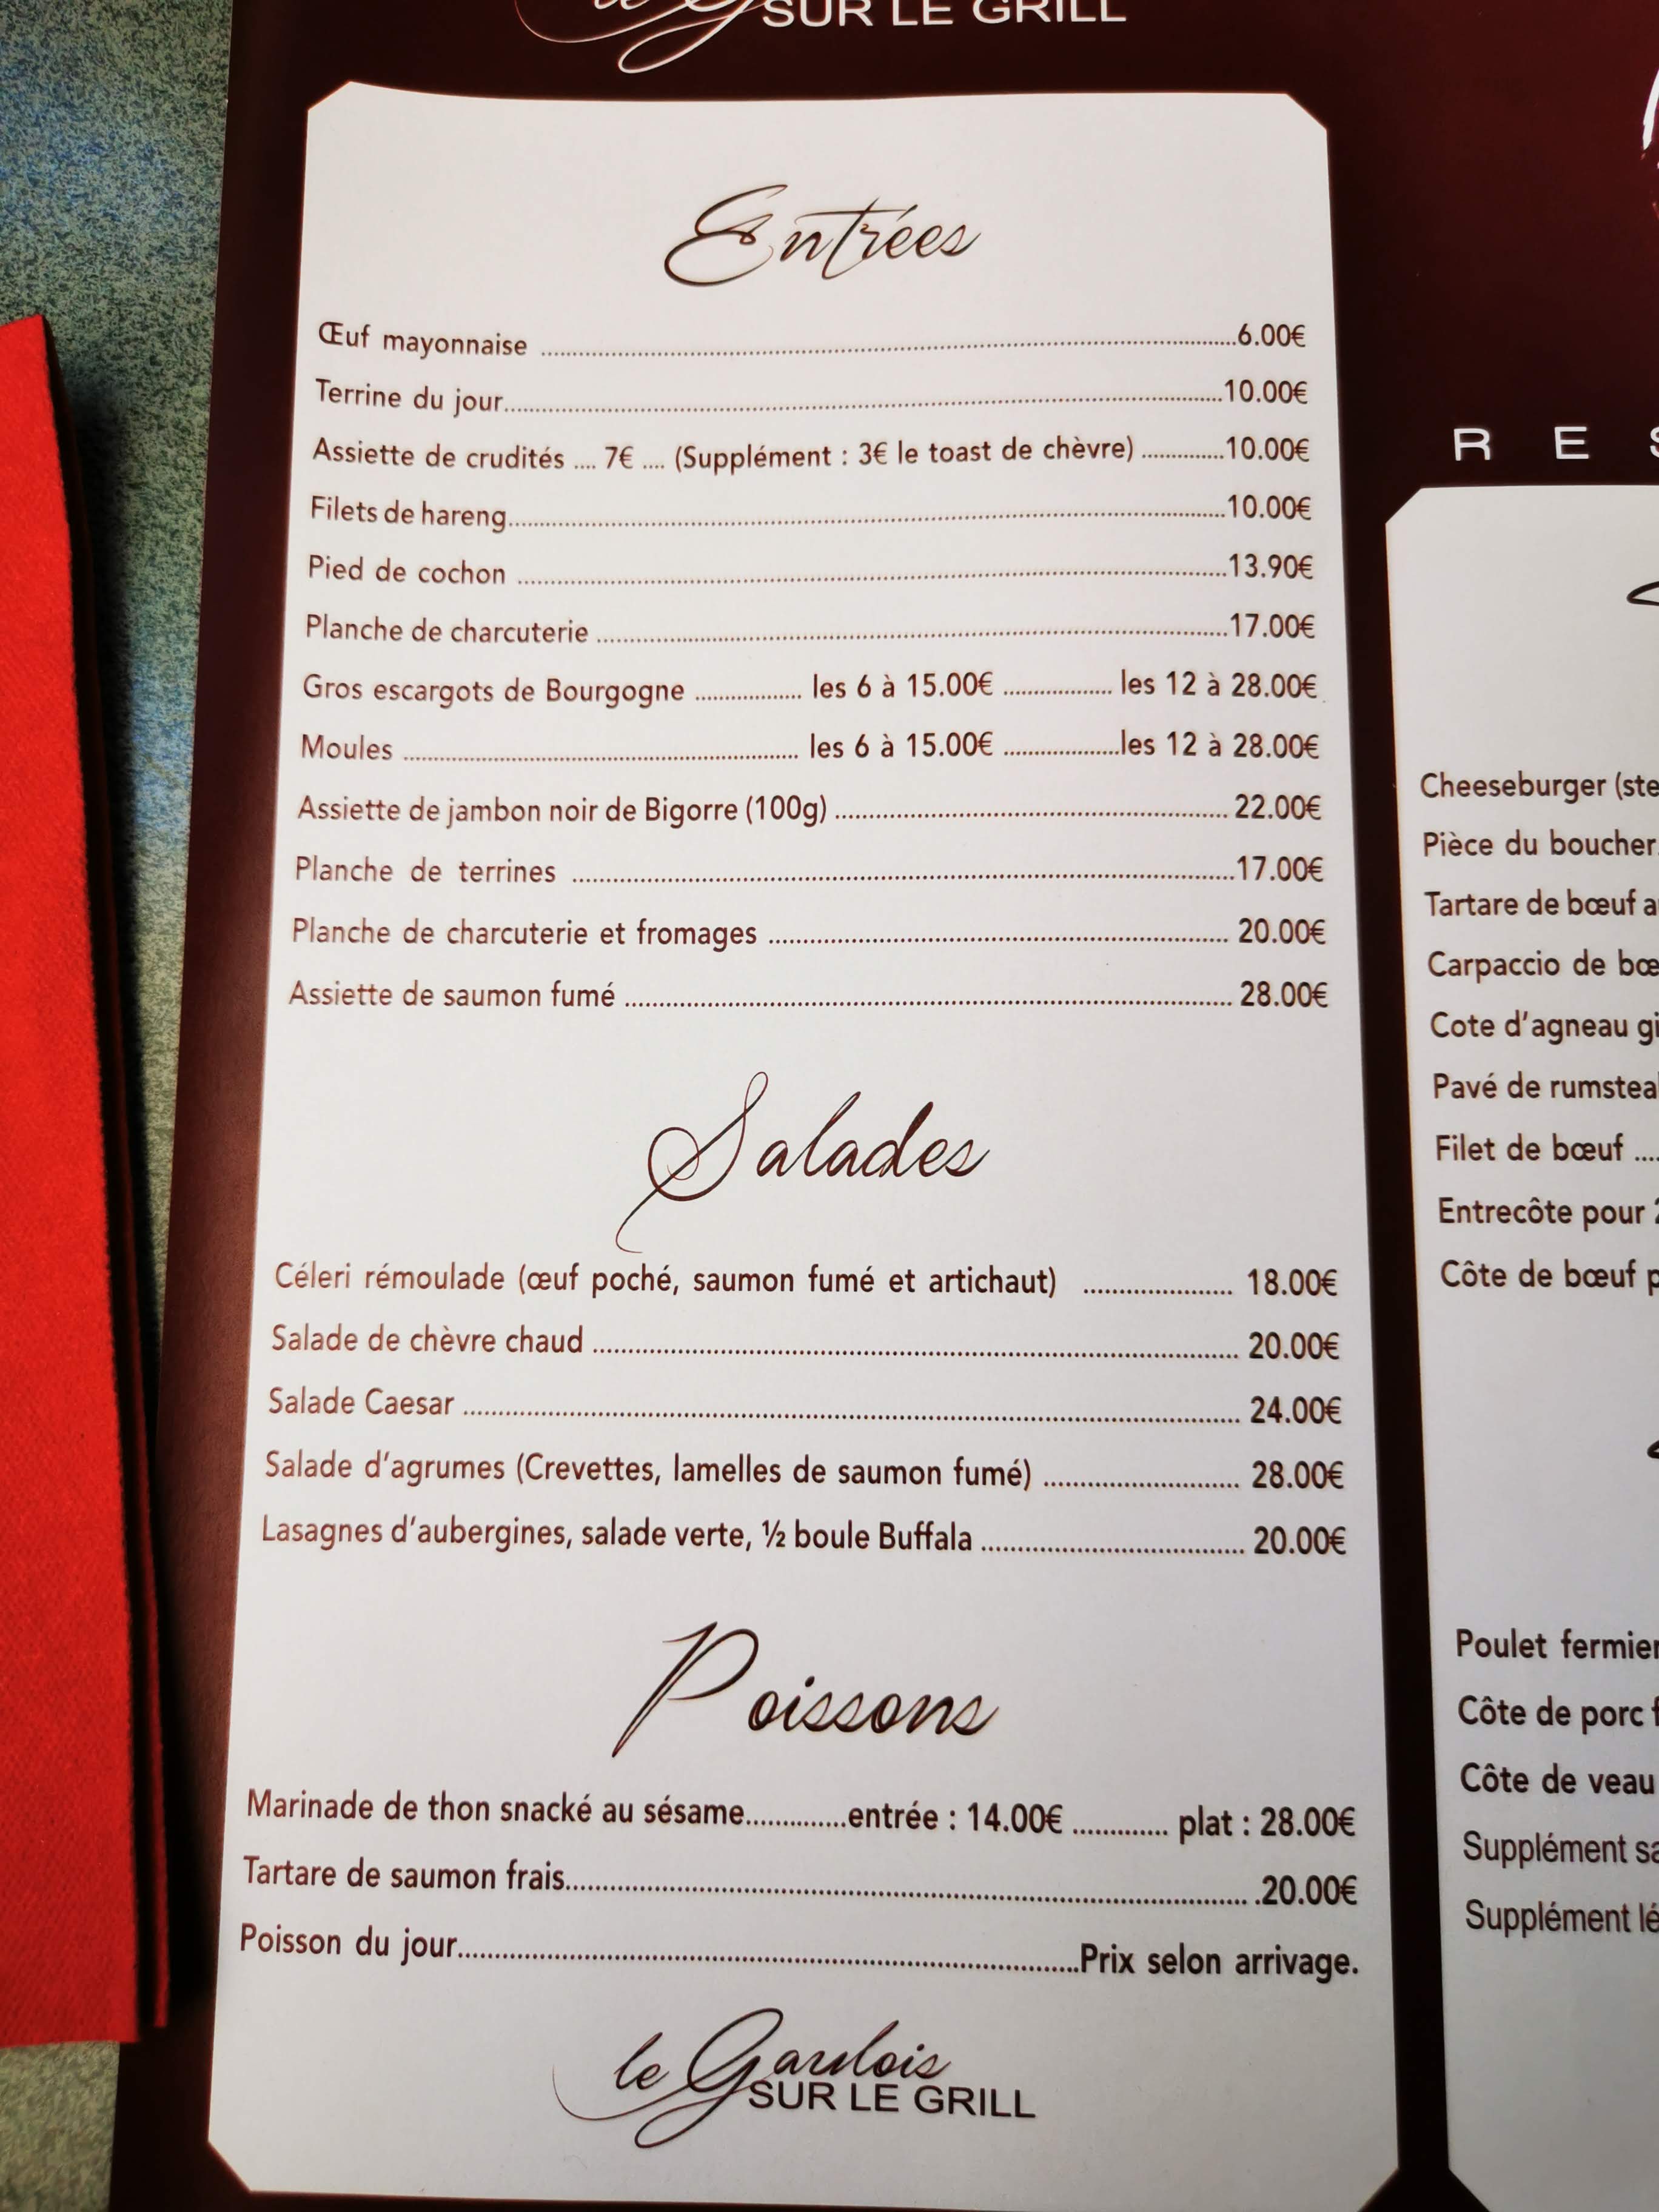 SUR LE GRILL
Entrées
Œuf mayonnaise ........ 6.00€
Terrine du jour ........ 10.00€
Assiette de crudités .... 7€ .... (Supplément : 3€ le toast de chèvre) ........ 10.00€
Filets de hareng ........ 10.00€
Pied de cochon ........ 13.90€
Planche de charcuterie ........ 17.00€
Gros escargots de Bourgogne ........ les 6 à 15.00€ ........ les 12 à 28.00€
Moules ........ les 6 à 15.00€ ........ les 12 à 28.00€
Assiette de jambon noir de Bigorre (100g) ........ 22.00€
Planche de terrines ........ 17.00€
Planche de charcuterie et fromages ........ 20.00€
Assiette de saumon fumé ........ 28.00€
Salades
Céleri rémoulade (œuf poché, saumon fumé et artichaut) ........ 18.00€
Salade de chèvre chaud ........ 20.00€
Salade Caesar ........ 24.00€
Salade d'agrumes (Crevettes, lamelles de saumon fumé) ........ 28.00€
Lasagnes d'aubergines, salade verte, ½ boule Buffala ........ 20.00€
Poissons
Marinade de thon snacké au sésame ........ entrée : 14.00€ ........ plat : 28.00€
Tartare de saumon frais ........ 20.00€
Poisson du jour ........ Prix selon arrivage.
le Gaulois
SUR LE GRILL
R E S
Cheeseburger (ste
Pièce du boucher
Tartare de bœuf a
Carpaccio de bœ
Cote d'agneau gi
Pavé de rumstea
Filet de bœuf ....
Entrecôte pour 2
Côte de bœuf p
Poulet fermier
Côte de porc f
Côte de veau
Supplément sa
Supplément lé